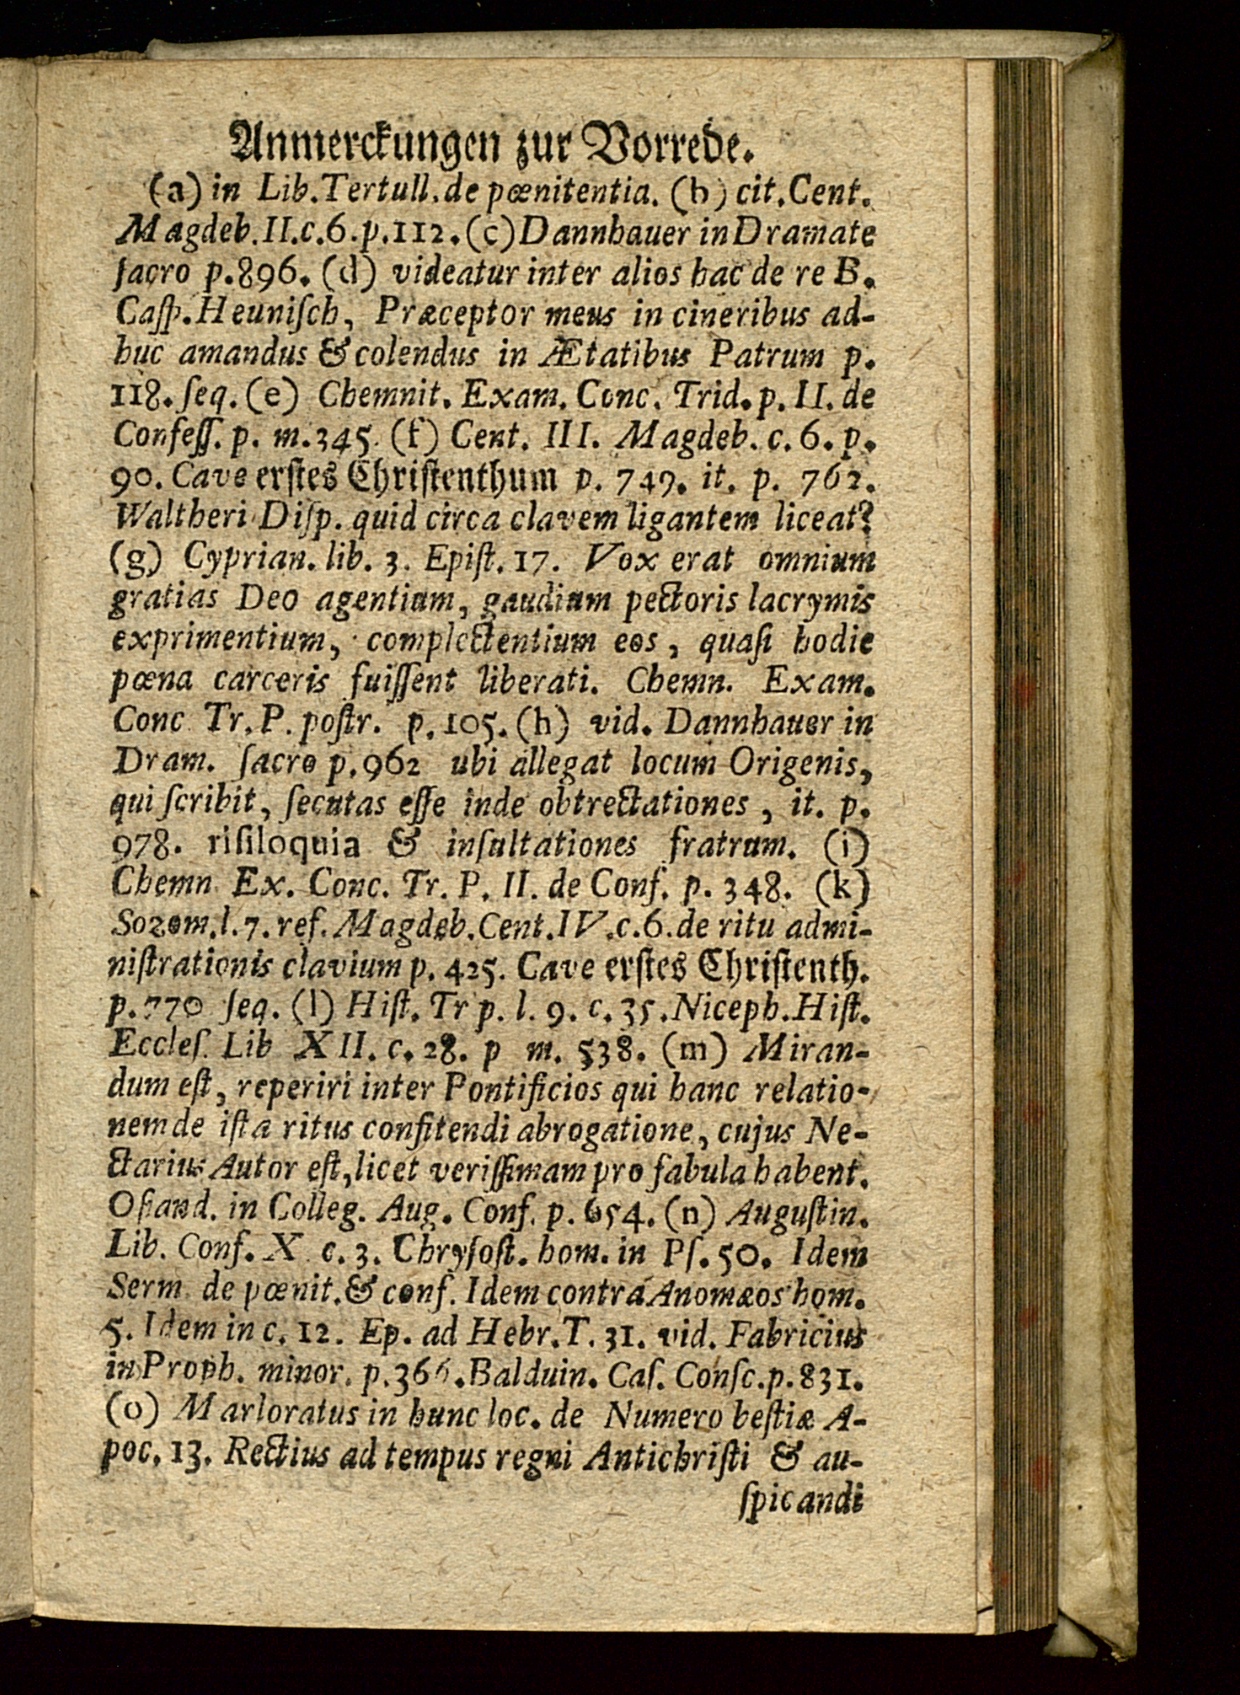 Anmerckungen zur Vorrede.
(a) in Lib. Tertull. de pœnitentia. (b) cit. Cent.
Magdeb. II. c. 6. p. 112. (c) Dannhauer in Dramate
ſacro p. 896. (d) videatur inter alios hac de re B.
Caſp. Heuniſch, Præceptor meus in cineribus ad-
huc amandus & colendus in Ætatibus Patrum p.
118. ſeq. (e) Chemnit. Exam. Conc. Trid. p. II. de
Confeſſ. p. m. 345. (f) Cent. III. Magdeb. c. 6. p.
90. Cave erſtes Chriſtenthum p. 749. it. p. 762.
Waltheri Diſp. quid circa clavem ligantem liceat?
(g) Cyprian. lib. 3. Epiſt. 17. Vox erat omnium
gratias Deo agentium, gaudium pectoris lacrymis
exprimentium, complectentium eos, quaſi hodie
pœna carceris fuiſſent liberati. Chemn. Exam.
Conc Tr. P. poſtr. p. 105. (h) vid. Dannhauer in
Dram. ſacro p. 962 ubi allegat locum Origenis,
qui ſcribit, ſecutas eſſe inde obtrectationes, it. p.
978. riſiloquia & inſultationes fratrum. (i)
Chemn Ex. Conc. Tr. P. II. de Conf. p. 348. (k)
Sozom. l. 7. ref. Magdeb. Cent. IV. c. 6. de ritu admi-
niſtrationis clavium p. 425. Cave erſtes Chriſtenth.
p. 770 ſeq. (l) Hiſt. Trp. l. 9. c. 35. Niceph. Hiſt.
Eccleſ. Lib XII. c. 28. p m. 538. (m) Miran-
dum eſt, reperiri inter Pontificios qui hanc relatio-
nem de iſta ritus confitendi abrogatione, cujus Ne-
ctarius Autor eſt, licet veriſſimam pro fabula habent.
Oſiand. in Colleg. Aug. Conf. p. 654. (n) Auguſtin.
Lib. Conf. X c. 3. Chryſoſt. hom. in Pſ. 50. Idem
Serm de pœnit. & conf. Idem contrá Anomæos hom.
5. Idem in c. 12. Ep. ad Hebr. T. 31. vid. Fabricius
in Proph. minor. p. 366. Balduin. Caſ. Conſc. p. 831.
(o) Marloratus in hunc loc. de Numero beſtiæ A-
poc. 13. Rectius ad tempus regni Antichriſti & au-
ſpicandi